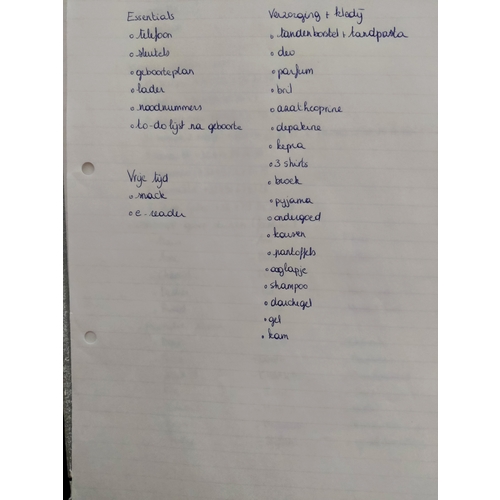 Essentials
telefoon
sleutels
geboorteplan
lader
noodnummers
to-do lijst na geboorte
Vrije tijd
snack
e-reader
Verzorging + kledij
tandenborstel + tandpasta
deo
parfum
bril
azathioprine
depakine
kepra
3 shirts
broek
pyjama
ondergoed
kousen
pantoffels
ooglapje
shampoo
douchegel
gel
kam